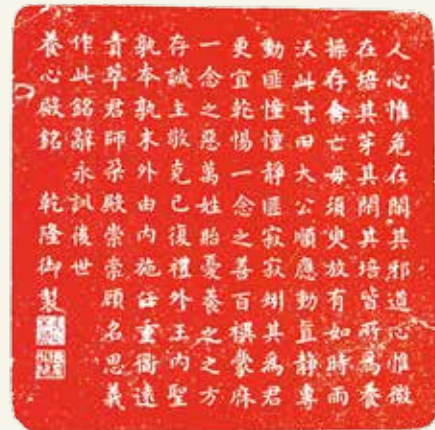 人心惟危在閑其邪道心惟微
在培其芽其閑其培皆所為養
操存舍亡毋須臾放有如時雨
沃此寸田大公順應動直靜專
動匪憧憧靜匪寂寂矧其為君
更宜乾惕一念之善百禩蒙庥
一念之惡萬姓貽憂養之之方
存誠主敬克己復禮外王內聖
孰本孰末外由內施任重衟遠
責萃君師朶殿崇崇顧名思義
作此銘辭永訓後世
養心殿銘 乾隆御製